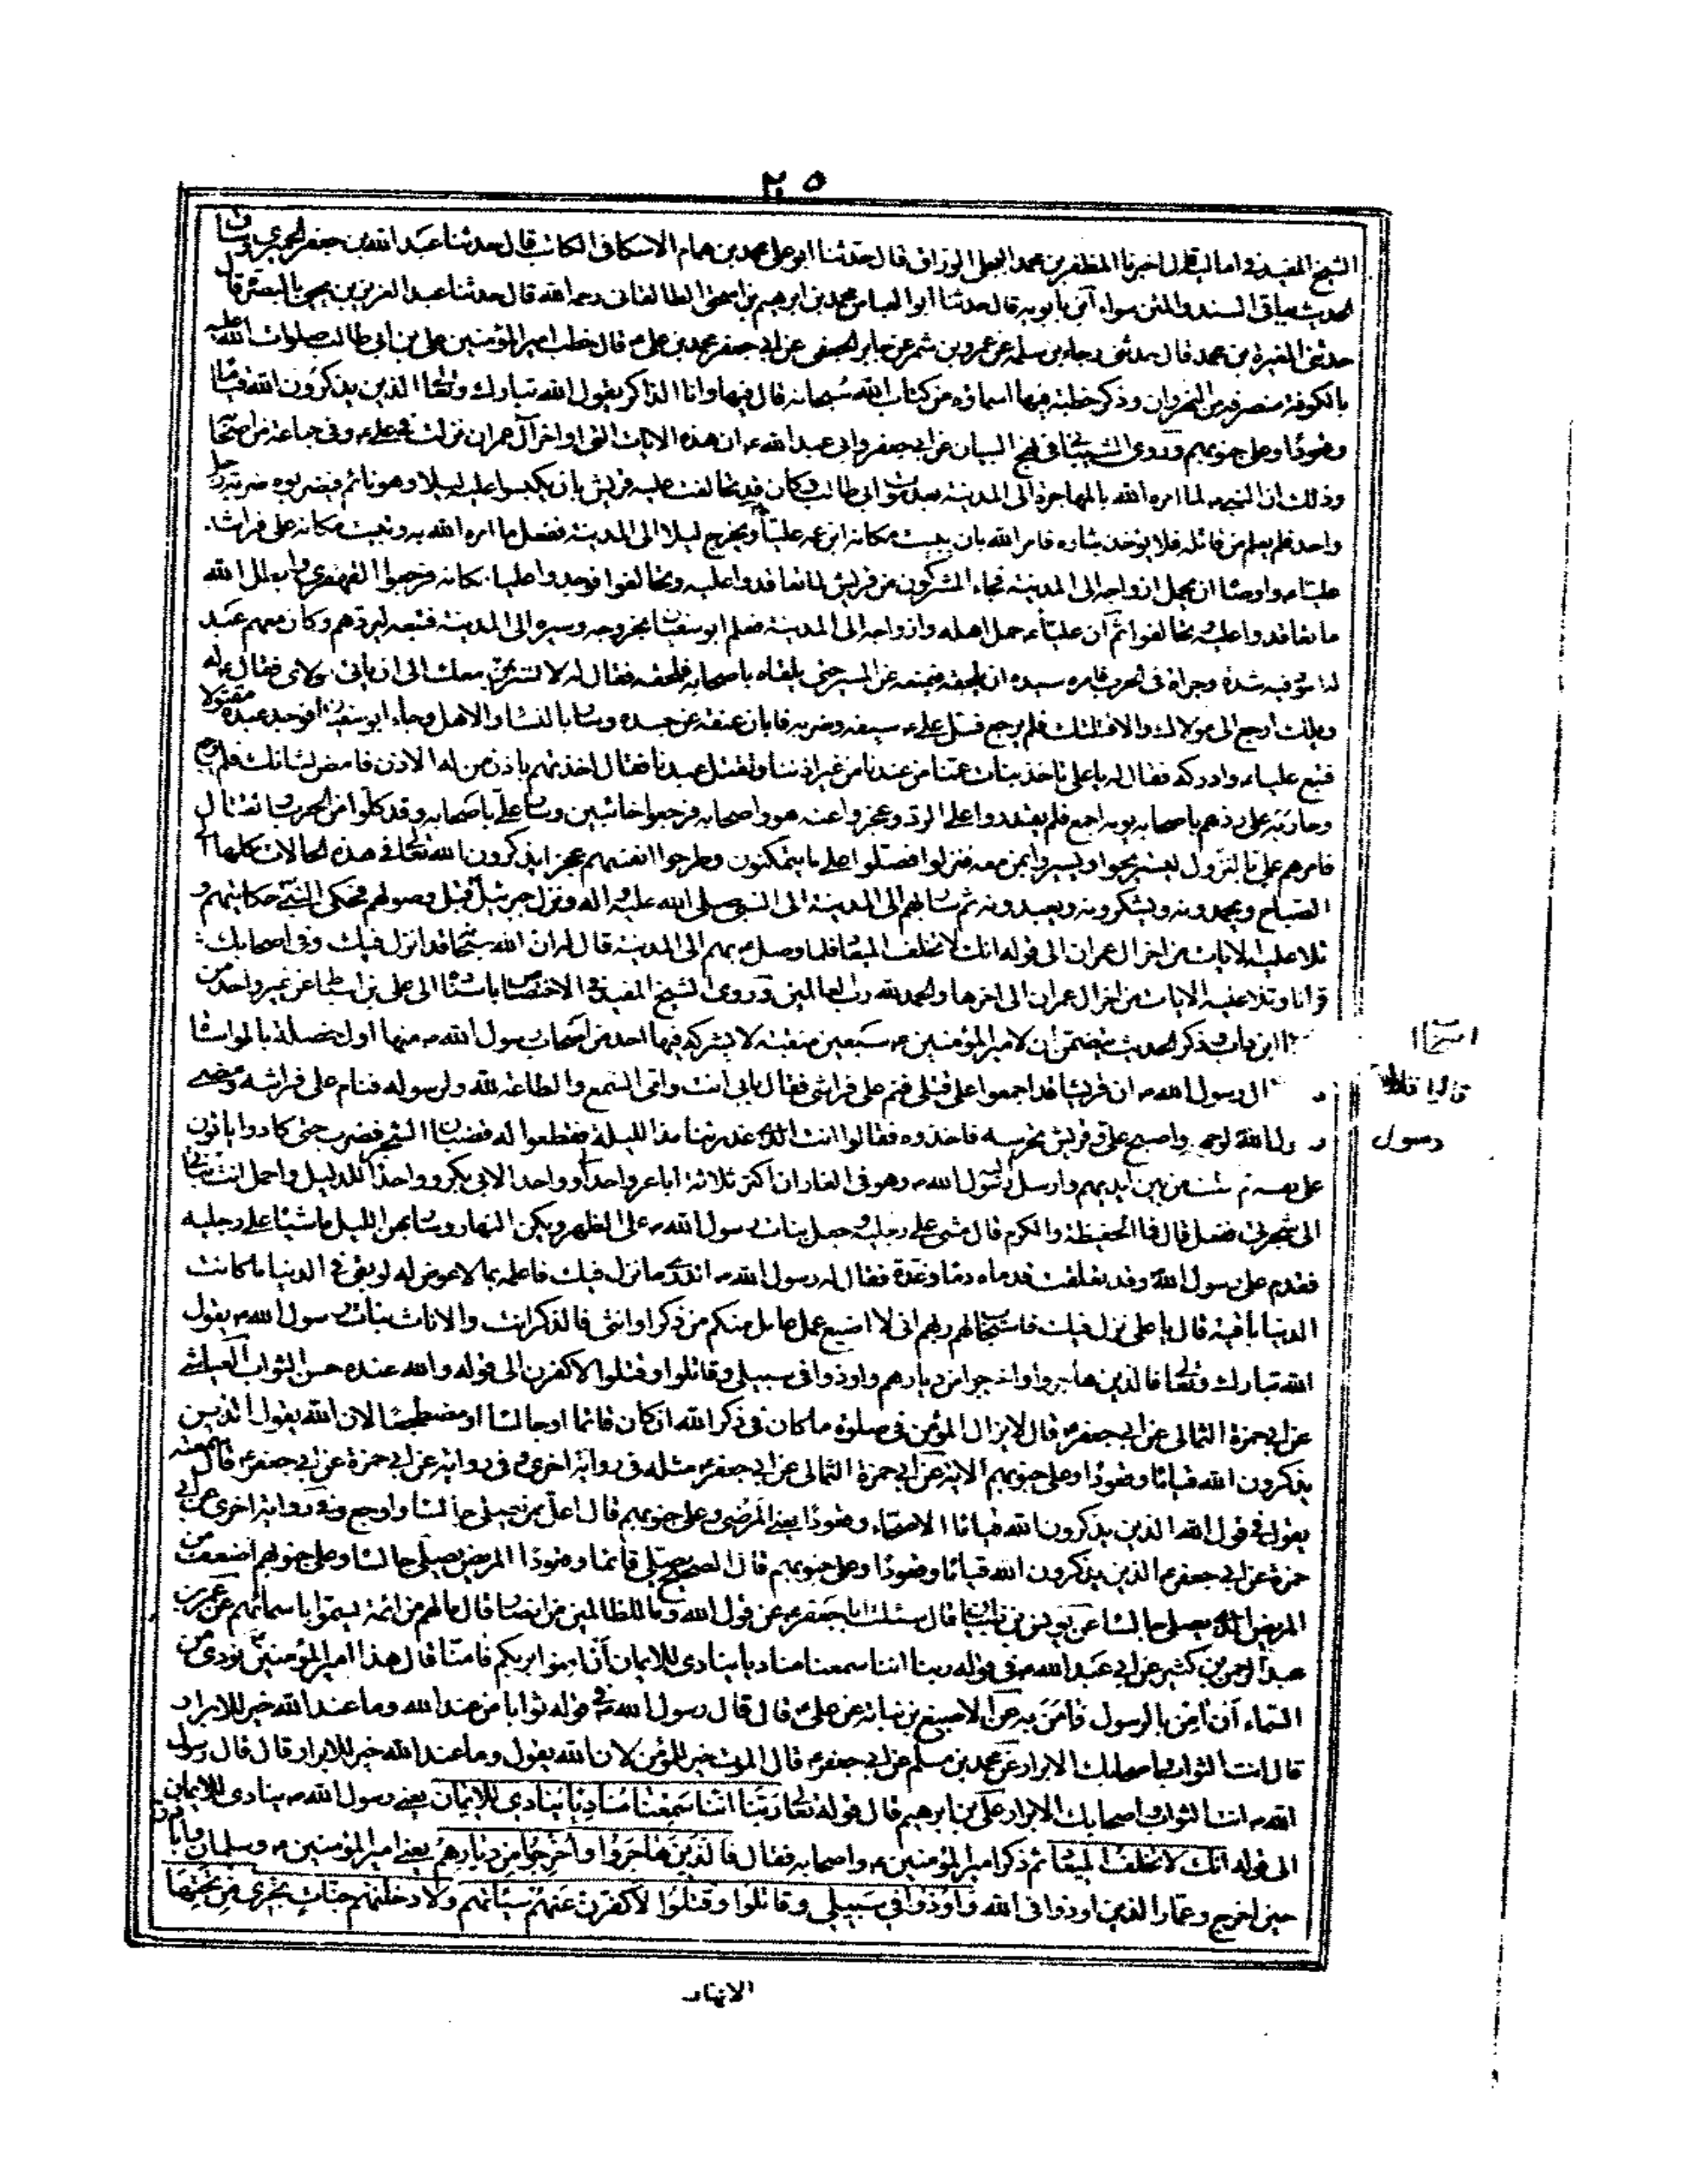 ٢٥
الشيخ المفيد في اماليه قال اخبرنا المظفر بن محمد البجلي الوراق قال حدثنا ابو علي محمد بن همام الاسكافي الكاتب قال حدثنا عبد الله بن جعفر الحميري وساق
الحديث بباقي السند والمتن سواء ابن بابويه قال حدثنا ابو العباس محمد بن ابرهيم بن اسحق الطالقاني رحمه الله قال حدثنا عبد العزيز بن يحيى بالبصرة قال
حدثني المغيرة بن محمد قال حدثني رجاء بن سلمة عن عمرو بن شمر عن جابر الجعفي عن ابي جعفر محمد بن علي ع قال خطب امير المؤمنين علي بن ابي طالب صلوات الله عليه
بالكوفة منصرفه من النهروان وذكر خطبة فيها اسماؤه من كتاب الله سبحانه قال فيها وانا الذاكر يقول الله تبارك وتعالى الذين يذكرون الله قياما
وقعودا وعلى جنوبهم وروى الشيباني في نهج البيان عن ابي جعفر وابي عبد الله ع ان هذه الايات التي اواخر آل عمران نزلت في علي ع وفي جماعة من اصحابه
وذلك ان النبي ص لما امره الله بالمهاجرة الى المدينة بعد موت ابي طالب وكان قد تحالفت عليه قريش بان يكبسوا عليه ليلا وهو نائم فيضربوه ضربة رجل
واحد فلم يعلم من قاتله فلا يؤخذ بثاره فامر الله بان يبيت مكانه ابن عمه عليا ويخرج ليلا الى المدينة ففعل ما امره الله به وبيت مكانه على فراشه
عليا ع واوصاه ان يحمل ازواجه الى المدينة فجاء المشركون من قريش لما تعاقدوا عليه وتحالفوا فوجدوا عليا مكانه فرجعوا القهقرى وابطل الله
ما تعاقدوا عليه وتحالفوا ثم ان عليا ع حمل اهله وازواجه الى المدينة فعلم ابو سفيان بخروجه وسيره الى المدينة فتبعه ليردهم وكان معهم عبد
له اسود فيه شدة وجراة في الحرب فامره سيده ان يلحقه فيمنعه عن المسير حتى يلقاه باصحابه فلحقه فقال له لا تسر بمن معك الى ان ياتي مولاي فقال ع له
ويلك ارجع الى مولاك والا قتلتك فلم يرجع فسل علي ع سيفه وضربه فابان عنقه عن جسده وسار بالنساء والاهل وجاء ابو سفيان فوجد عبده مقتولا
فتبع عليا ع وادركه فقال له يا علي تاخذ بنات عمنا من عندنا من غير اذننا وتقتل عبدنا فقال اخذتهم باذن من له الاذن فامض لشانك فلم يرجع
وحاربه على ردهم باصحابه يومه اجمع فلم يقدروا على الرد وعجزوا عنه هو واصحابه فرجعوا خائبين وسار علي باصحابه وقد كلوا من الحرب والقتال
فامرهم علي ع بالنزول ليستريحوا ويسير بمن معه فنزلوا فصلوا على ما يتمكنون وطرحوا انفسهم عجزا يذكرون الله تعالى في هذه الحالات كلها الى
الصباح ويحمدونه ويشكرونه ويعبدونه ثم سار بهم الى المدينة الى النبي صلى الله عليه واله ونزل جبرئيل قبل وصولهم فحكى للنبي حكايتهم و
تلا عليه الايات من اخر ال عمران الى قوله انك لا تخلف الميعاد فلما وصل ع بهم الى المدينة قال له ان الله سبحانه قد انزل فيك وفي اصحابك
قرانا وتلا عليه الايات من اخر ال عمران الى اخرها والحمد لله رب العالمين وروى الشيخ المفيد في الاختصاص باسناده الى علي بن اسباط عن غير واحد من
ابن داب وذكر الحديث يتضمن ان لامير المؤمنين ع سبعين منقبة لا يشركه فيها احد من اصحاب رسول الله ص منها اول خصلة بالمواساة
ال رسول الله ص ان قريشا قد اجمعوا على قتلي فنم على فراشي فقال بابي انت وامي السمع والطاعة لله ولرسوله فنام على فراشه ومضى
رسول الله لوجهه واصبح علي وقريش يحرسه فاخذوه فقالوا انت الذي غدرتنا منذ الليلة فقطعوا له قضبان الشجر فضرب حتى كادوا ياتون
على نفسه ثم افلت من بين ايديهم وارسل اليه رسول الله ص وهو في الغار ان اكتر ثلاثة اباعر واحدا لي وواحد الابي بكر وواحدا للدليل واحمل انت بناتي
الى ان تلحق بي ففعل قال فما الحفيظة والكرم قال مشى على رجليه وحمل بنات رسول الله ص على الظهر وكمن النهار وسار بهن الليل ماشيا على رجليه
فقدم على رسول الله وقد تفلقت قدماه دما ومدة فقال له رسول الله ص اتدري ما نزل فيك فاعلمه بما لا عوض له لو بقي في الدنيا ما كانت
الدنيا باقية قال يا علي نزل فيك فاستجاب لهم ربهم اني لا اضيع عمل عامل منكم من ذكر او انثى فالذكر انت والاناث بنات رسول الله ص يقول
الله تبارك وتعالى فالذين هاجروا واخرجوا من ديارهم واوذوا في سبيلي وقاتلوا وقتلوا لاكفرن الى قوله والله عنده حسن الثواب العياشي
عن ابي حمزة الثمالي عن ابي جعفر ع قال لا يزال المؤمن في صلوة ما كان في ذكر الله ان كان قائما او جالسا او مضطجعا لان الله يقول الذين
يذكرون الله قياما وقعودا وعلى جنوبهم الاية عن ابي حمزة الثمالي عن ابي جعفر ع مثله في رواية اخرى وفي رواية عن ابي حمزة عن ابي جعفر ع قال سمعته
يقول في قول الله الذين يذكرون الله قياما الاصحاء وقعودا يعني المرضى وعلى جنوبهم قال اعل ممن يصلي جالسا واوجع وفي رواية اخرى عن ابي
حمزة عن ابي جعفر ع الذين يذكرون الله قياما وقعودا وعلى جنوبهم قال الصحيح يصلي قائما وقعودا المريض يصلي جالسا وعلى جنوبهم اضعف من
المريض الذي يصلي جالسا عن يونس بن ظبيان قال سئلت ابا جعفر ع عن قول الله وما للظالمين من انصار قال ما لهم من ائمة يسموا باسمائهم عن عمر بن
عبد الرحمن بن كثير عن ابي عبد الله ع في قوله ربنا اننا سمعنا مناديا ينادي للايمان أن امنوا بربكم فامنا قال هذا امير المؤمنين نودي من
السماء أن آمن بالرسول فآمن به عن الاصبغ بن نباتة عن علي ع قال قال رسول الله ص في قوله ثوابا من عند الله وما عند الله خير للابرار
قال انت الثواب واصحابك الابرار عن محمد بن مسلم عن ابي جعفر ع قال الموت خير للمؤمن لان الله يقول وما عند الله خير للابرار قال قال رسول
الله ص انت الثواب واصحابك الابرار علي بن ابرهيم قال قوله تعالى رَبَّنا اننا سَمِعْنا مُنادِيًا يُنادي لِلإيمان يعني رسول الله ص ينادي للايمان
الى قوله انك لا تخلف الميعاد ثم ذكر امير المؤمنين ع واصحابه فقال فَالَّذينَ هاجَرُوا واُخْرِجُوا من ديارهم يعني امير المؤمنين ع وسلمان وابا ذر
حين اخرج وعمارا الذين اوذوا في الله واُوذُوا في سَبيلي وقاتلوا وقتلوا لأكفرن عنهم سيئاتهم ولأدخلنهم جنات تجري من تحتها
رسول
الانهار